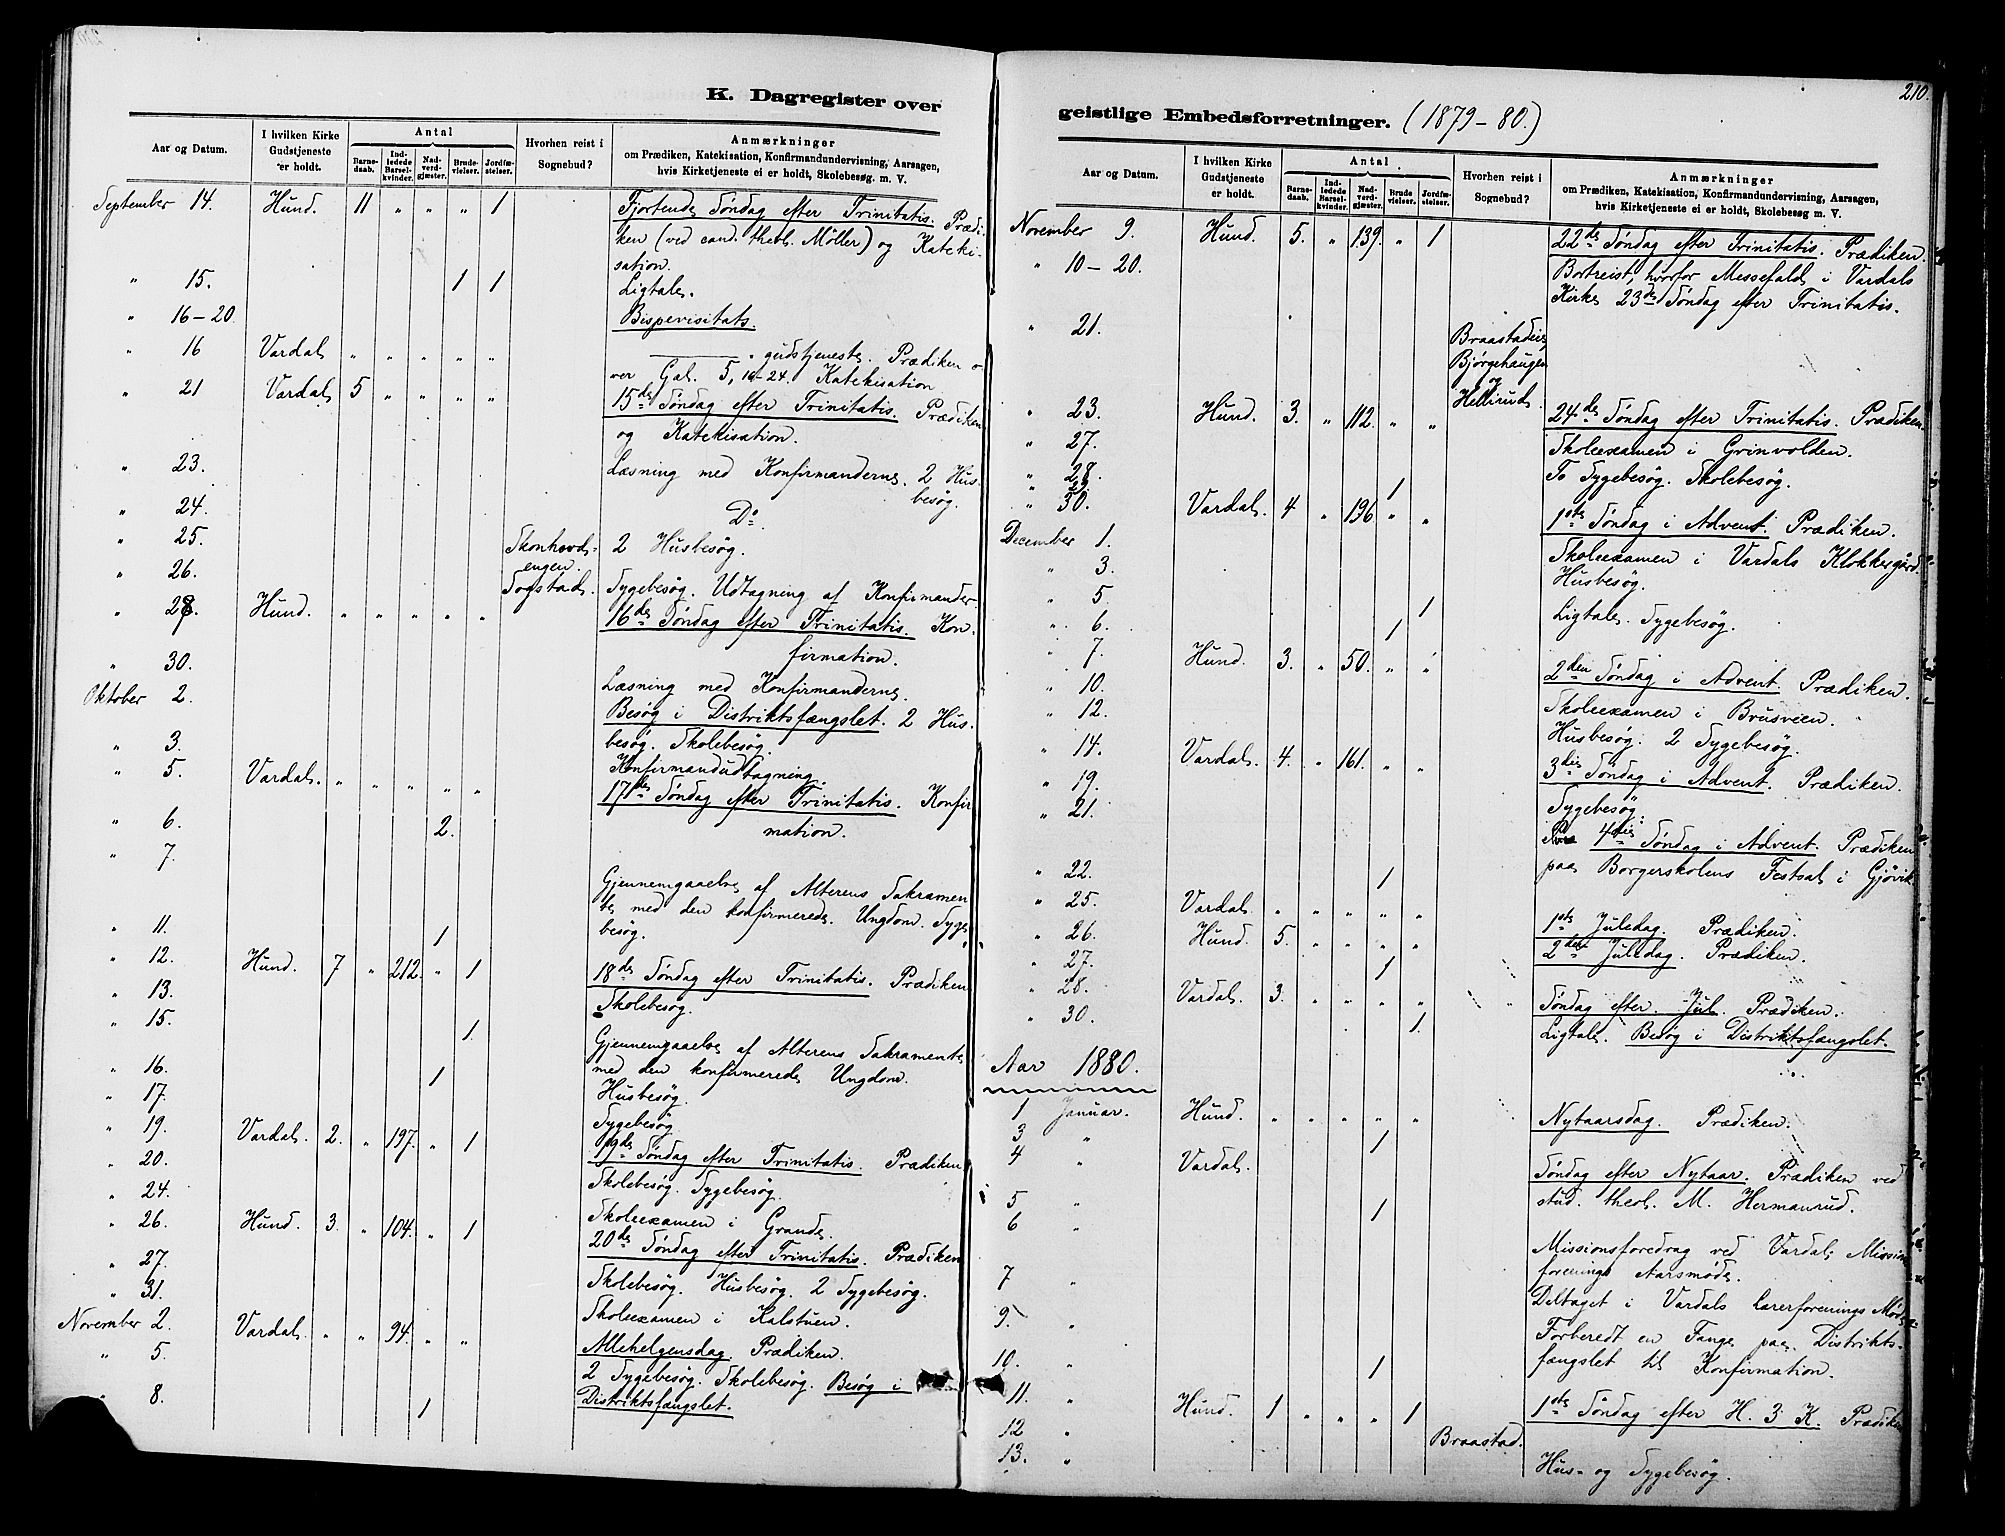 K. Dagregister over
Aar og Datum.
I hvilken Kirke Gudstjeneste er holdt.
Antal
Barnedaab.
Indledede Barselkvinder.
Nadverdgjæster.
Brudevielser.
Jordfæstelser.
Hvorhen reist i Sognebud?
Anmærkninger
om Prædiken, Katekisation, Konfirmandundervisning, Aarsagen,
hvis Kirketjeneste ei er holdt, Skolebesøg m. V.
September 14. Hund. 11 " " " 1 Fjortende Søndag efter Trinitatis. Prædi-
ken (ved cand. theol. Møller) og Kateki-
sation.
" 15. 1 1 Ligtale.
" 16-20. Bispevisitats.
" 16 Vardal " " " " " " gudstjeneste. Prædiken o-
ver Gal. 5, 16-24. Katekisation
" 21 Vardal 5 " " " " 15de Søndag efter Trinitatis. Prædiken
og Katekisation.
" 23. Læsning med Konfirmanderne. 2 Hus-
besøg.
" 24. Do.
" 25. Skonhovds- 2 Husbesøg.
engen.
" 26. Sogstad. Sygebesøg. Udtagning af Konfirmander
" 28. Hund. " " " " " 16de Søndag efter Trinitatis. Kon-
firmation.
" 30. Læsning med Konfirmanderne.
Oktober 2. Besøg i Distriktsfængslet. 2 Hus-
besøg. Skolebesøg.
" 3. Konfirmandudtagning.
" 5. Vardal. " " " " " 17de Søndag efter Trinitatis. Konfir
mation.
" 6. 2.
" 7. Gjennemgaaelse af Alterens Sakramen
te med den konfirmerede Ungdom. Syge
besøg.
" 11. 1
" 12. Hund. 7 " 212. " 1 18de Søndag efter Trinitatis. Prædiken
" 13. Skolebesøg.
" 15. 1. Gjennemgaaelse af Alterens Sakramente
med den konfirmerede Ungdom.
" 16. 1 Husbesøg.
" 17. Sygebesøg
" 19. Vardal. 2. " 197. " 1 19de Søndag efter Trinitatis. Prædiken
" 20. Skolebesøg. Sygebesøg.
" 24. Skoleexamen i Grande.
" 26. Hund. 3. " 104. " 1 20de Søndag efter Trinitatis. Prædiken
" 27. Skolebesøg. Husbesøg. 2 Sygebesøg.
" 31. Skoleexamen i Kalstuen.
November 2. Vardal. " " 94. " " Allehelgensdag. Prædiken.
" 5. 2 Sygebesøg. Skolebesøg. Besøg i
Distriktsfængslet.
" 8. 1
210.
geistlige Embedsforretninger. (1879-80.)
Aar og Datum.
I hvilken Kirke Gudstjeneste er holdt.
Antal
Barnedaab.
Indledede Barselkvinder.
Nadverdgjæster.
Brudevielser.
Jordfæstelser.
Hvorhen reist i Sognebud?
Anmærkninger
om Prædiken, Katekisation, Konfirmandundervisning, Aarsagen,
hvis Kirketjeneste ei er holdt, Skolebesøg m. V.
November 9. Hund. 5. " 139. " 1 22de Søndag efter Trinitatis. Prædiken.
" 10-20. Bortreist, hvorfor Messefald i Vardals
Kirke 23de Søndag efter Trinitatis.
" 21. Braastadeie,
Bjørgehaugen
og
Hellerud.
" 23. Hund. 3. " 112. " " 24de Søndag efter Trinitatis. Prædiken.
" 27. Skoleexamen i Grinvolden.
" 28. To Sygebesøg. Skolebesøg.
" 29. 1
" 30. Vardal. 4 " 196 " " 1ste Søndag i Advent. Prædiken.
December 1. Skoleexamen i Vardals Klokkergård.
" 3. Husbesøg.
" 5. 1 Ligtale. Sygebesøg.
" 6. 1
" 7. Hund. 3. " 50. " " 2den Søndag i Advent. Prædiken.
" 10. Skoleexamen i Brusveen.
" 12. Husbesøg. 2 Sygebesøg.
" 14. Vardal. 4. " 161. " " 3die Søndag i Advent. Prædiken.
" 19. Sygebesøg.
" 21. 4die Søndag i Advent. Prædiken
paa Borgerskolens Festsal i Gjøvik.
" 22. 1
" 25. Vardal. " " " " " 1ste Juledag. Prædiken.
" 26. Hund. 5. " " " " 2den Juledag. Prædiken.
" 27. 1
" 28. Vardal. 3. " " " " Søndag efter Jul. Prædiken.
" 30. 1. Ligtale. Besøg i Distriktsfængslet.
Aar 1880.
1 Januar. Hund. " " " " " Nytaarsdag. Prædiken.
3 " 1
4 " Vardal. Søndag efter Nytaar. Prædiken ved
stud. theol. M. Hermanrud.
5 " 1
6 " Missionsforedrag ved Vardals Missions
forenings Aarsmøde.
7 " Deltaget i Vardals Lærerforenings Møde
9. " Forberedt en Fange paa Distrikts-
fængslet til Konfirmation.
10. " 1
11. " Hund. 1 " " " 1 1ste Søndag efter H. 3 K. Prædiken
12 " Braastad.
13. " Hus- og Sygebesøg.